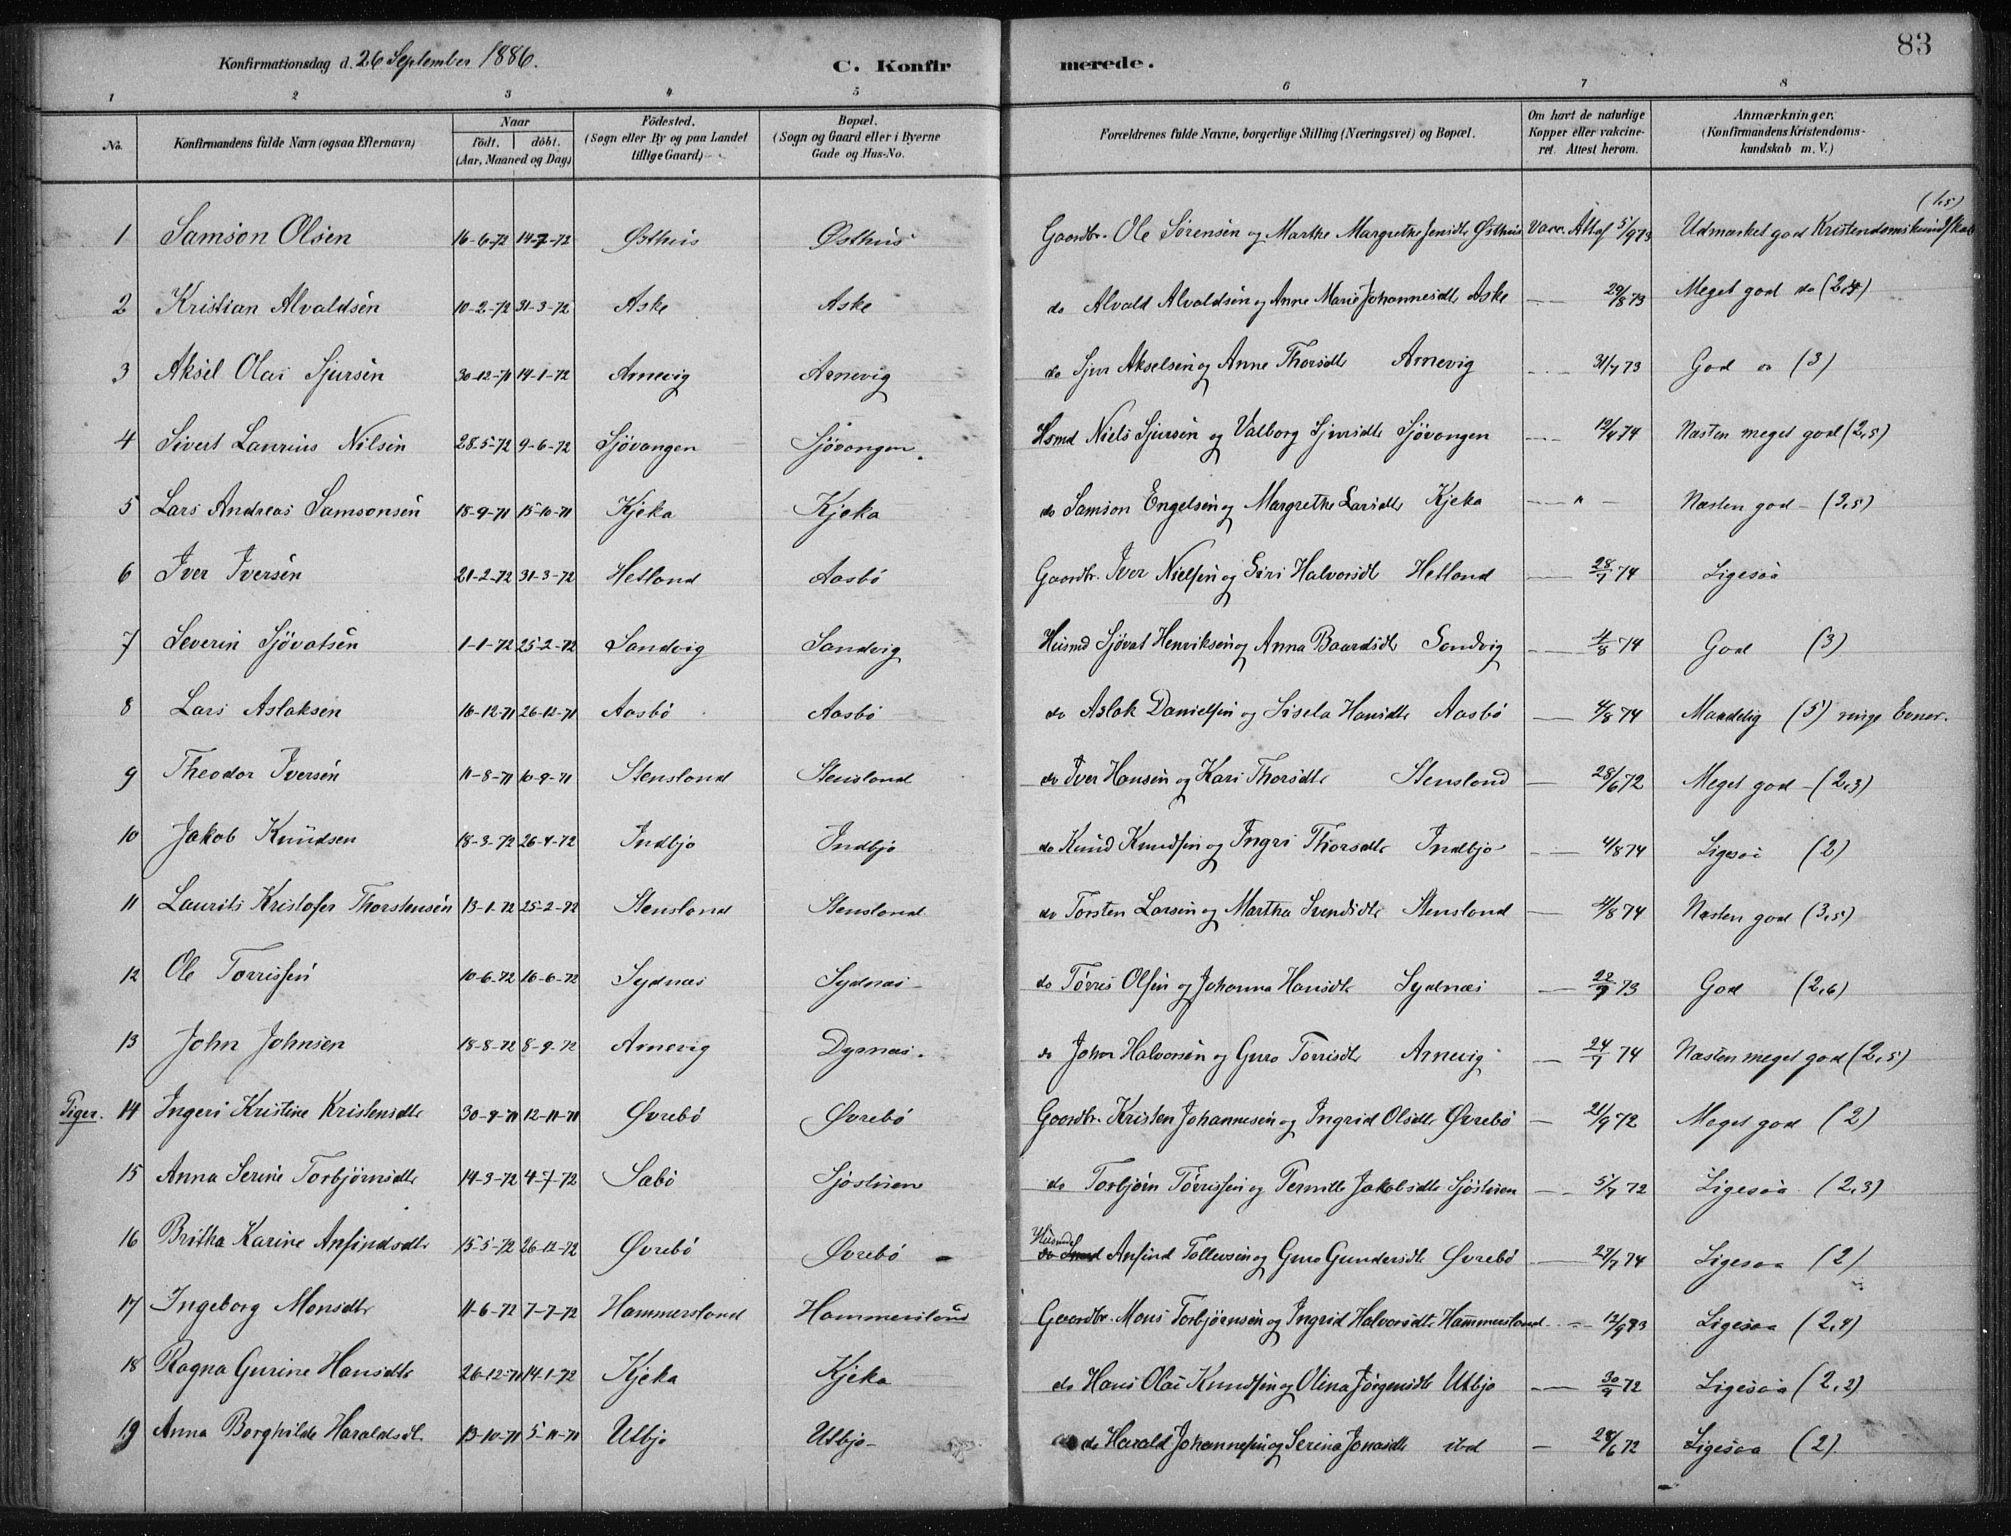 83
Konfirmationsdag d. 26 September 1886.
C. Konfirmerede.
1 2 3 4 5 6 7 8
No. Konfirmandens fulde Navn (ogsaa Efternavn) Naar födt. döbt. (Aar, Maaned og Dag) Födested. (Sogn eller By og paa Landet tillige Gaard) Bopæl. (Sogn og Gaard eller i Byerne Gade og Hus-No. Forældrenes fulde Navne, borgerlige Stilling (Næringsvei) og Bopæl. Om havt de naturlige Kopper eller vakcineret. Attest herom. Anmærkninger. (Konfirmandens Kristendomskundskab m. V.)
1 Samson Olsen 16-6-72 14-7-72 Østhus Østhus Gaardbr. Ole Sørensen og Marthe Margrethe Jensdtr Østhus Vacc. Att af 5/9 73 Udmærket god Kristendomskundskab (1,5)
2 Kristian Alvaldsen 10-2-72 31-3-72 Aske Aske do Alvald Alvaldsen og Anne Marie Johannesdtr Aske — 29/8 73 Meget god do
3 Aksel Olai Sjursen 30-12-71 14-1-72 Arnevig Arnevig do Sjur Akselsen og Anne Thorsdtr Arnevig — 31/7 73 God do (3)
4 Sivert Laurius Nilsen 28-5-72 9-6-72 Sjövangen Sjövangen. Hsmd Niels Sjursen og Valborg Sjursdtr Sjövangen — 12/4 74 Næsten meget god (2,5)
5 Lars Andreas Samsonsen 18-9-71 15-10-71 Kjeka Kjeka do Samson Engelsen og Margrethe Larsdtr Kjeka — " — Næsten god — (3,5)
6 Iver Iversen 21-2-72 31-3-72 Hetland Aasbø Gaardbr. Iver Nielsen og Siri Halvorsdt Hetland — 28/7 74 Ligesaa
7 Severin Sjövatsen 1-1-72 25-2-72 Sandvig Sandvig Husmd Sjövat Henriksen og Anna Baardsdtr Sandvig — 4/8 74 God (3)
8 Lars Aslaksen 16-12-71 26-12-71 Aasbø Aasbø do Aslak Danielsen og Sisela Hansdtr Aasbø — 4/8 74 Maadelig (5) ringe Evner.
9 Theodor Iversen 11-8-71 10-9-71 Stensland Stensland do Iver Hansen og Kari Thorsdtr Stensland — 28/6 72 Meget god — (2,3)
10 Jakob Knudsen 18-3-72 26-4-72 Indbjo Indbjo do Knud Knudsen og Ingri Thorsdtr Indbjo — 4/8 74 Ligesaa (2)
11 Laurits Kristofer Thorstensen 13-1-72 25-2-72 Stensland Stensland do Torsten Larsen og Martha Svendsdtr Stensland — 4/8 74 Næsten god (3,5)
12 Ole Torrissen 10-6-72 16-6-72 Sydnæs Sydnæs do Tørris Olsen og Johanna Hansdtr Sydnæs — 22/7 73 God (2,6)
13 John Johnsen 18-8-72 8-9-72 Arnevig Dyrnæs. do John Halvorsen og Guro Torrisdtr Arnevig — 24/7 74 Næsten meget god (2,5)
Piger. 14 Ingeri Kristine Kristensdtr 30-9-71 12-11-71 Øvrebö Øvrebö Gaardbr. Kristen Johannesen og Ingrid Olsdtr Øvrebö — 21/9 72 Meget god (2)
15 Anna Serine Torbjørnsdtr 14-3-72 4-7-72 Sæbö Sjöstuen do Torbjörn Törrissen og Pernille Jakobsdtr Sjöstuen — 5/7 72 Ligesaa (2,3)
16 Britha Karine Anfindsdtr 15-5-72 26-12-72 Øvrebö Øvrebö Husmd Anfind Tollevsen og Guro Gundersdtr Øvrebö — 27/7 74 Ligesaa (2)
17 Ingeborg Monsdtr 11-6-72 7-7-72 Hammersland Hammersland Gaardbr. Mons Torbjørnsen og Ingrid Halvorsdtr Hammersland — 12/9 73 Ligesaa (2,4)
18 Ragna Gurine Hansdtr 26-12-71 14-1-72 Kjeka Kjeka do Hans Olai Knudsen og Olina Jørgensdtr Utbjo — 30/9 72 Ligesaa (2,2)
19 Anna Borghilde Haraldsdt. 13-10-71 5-11-71 Utbjo Utbjo do Harald Johannesen og Serina Jonasdtr ibd — 28/6 72 Ligesaa (2)